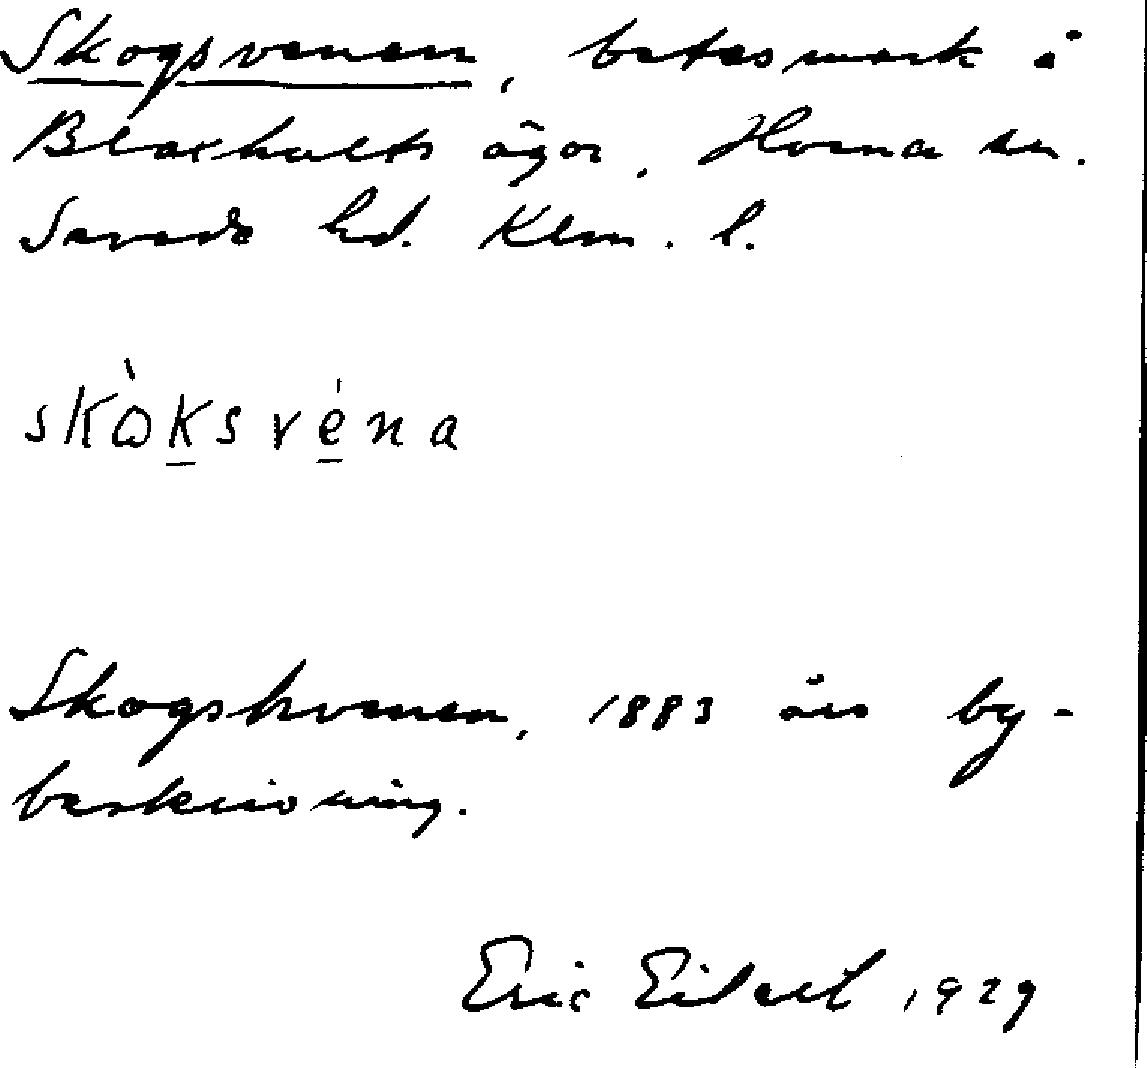 Skogsvenen, betesmark i
Blaxhults ägor, Horna sn.
Sevede hd. Klm. l.
skòksvéna
Skogshvenen, 1883 års by-
beskrivning.
Eric Eidvall, 1929